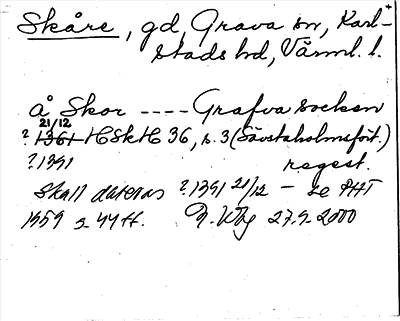 Skåre, gd, Grava sn, Karl-
stads hd, Värml. l.
å Skor ---- Grafva socken
21/12
? 1361 HSH 36, s. 3 (Sävstaholmsfört.)
? 1391 regest.
Skall dateras ? 1391 21/12 – se PHT
1959 s 44 ff. 27.9.2000